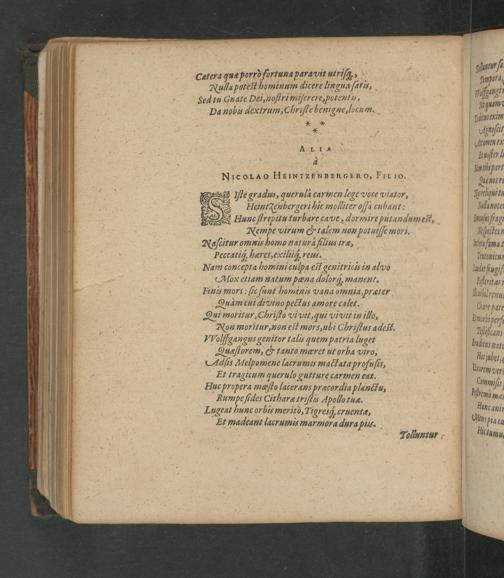 Cætera quæ porrò fortuna paravit utrisq́,
Nulla potest hominum dicere lingua satis,
Sed tu Gnate Dei, nostri miserere, potentis,
Da nobis dextrum, Christe benigne, locum.
* *
*
ALIA
à
NICOLAO HEINTZENBERGERO, FILIO.
Siste gradus, querulâ carmen lege voce viator,
Heintzenbergeri hîc molliter ossa cubant:
Hunc strepitu turbare cave, dormire putandum est,
Nempe virum & talem non potuisse mori.
Nascitur omnis homo naturâ filius iræ,
Peccatiq́, hæres, exiliiq́, reus.
Nam concepta homini culpa est genitricis in alvo
Mox etiam natum pœna dolorq́, manent.
Finis mors: sic sunt hominis vana omnia, præter
Quàm cui divino pectus amore calet.
Qui moritur, Christo vivit, qui vivit in illo,
Non moritur, non est mors, ubi Christus adest.
VVolffgangus genitor talis quem patria luget
Quæstorem, & tanto mœret ut orba viro,
Adsis Melpomene lacrumis mactata profusis,
Et tragicum querulo gutture carmen eat.
Huc propera mœsto lacerans præcordia planctu,
Rumpe fides Citharæ tristis Apollo tuæ.
Lugeat hunc orbis meritò, Tigresq́, cruentæ,
Et madeant lacrumis marmora dura piis.
Tolluntur